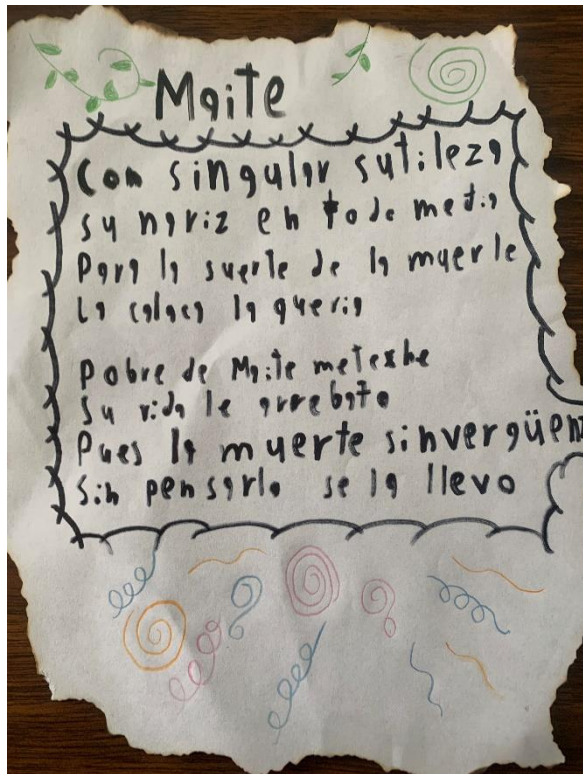 Maite
Con singular sutileza
su nariz en todo metia
Para la suerte de la muerte
La calaca la queria
Pobre de Maite metexhe
Su vida le arrebato
Pues la muerte sinvergüen
Sin pensarlo se la llevo